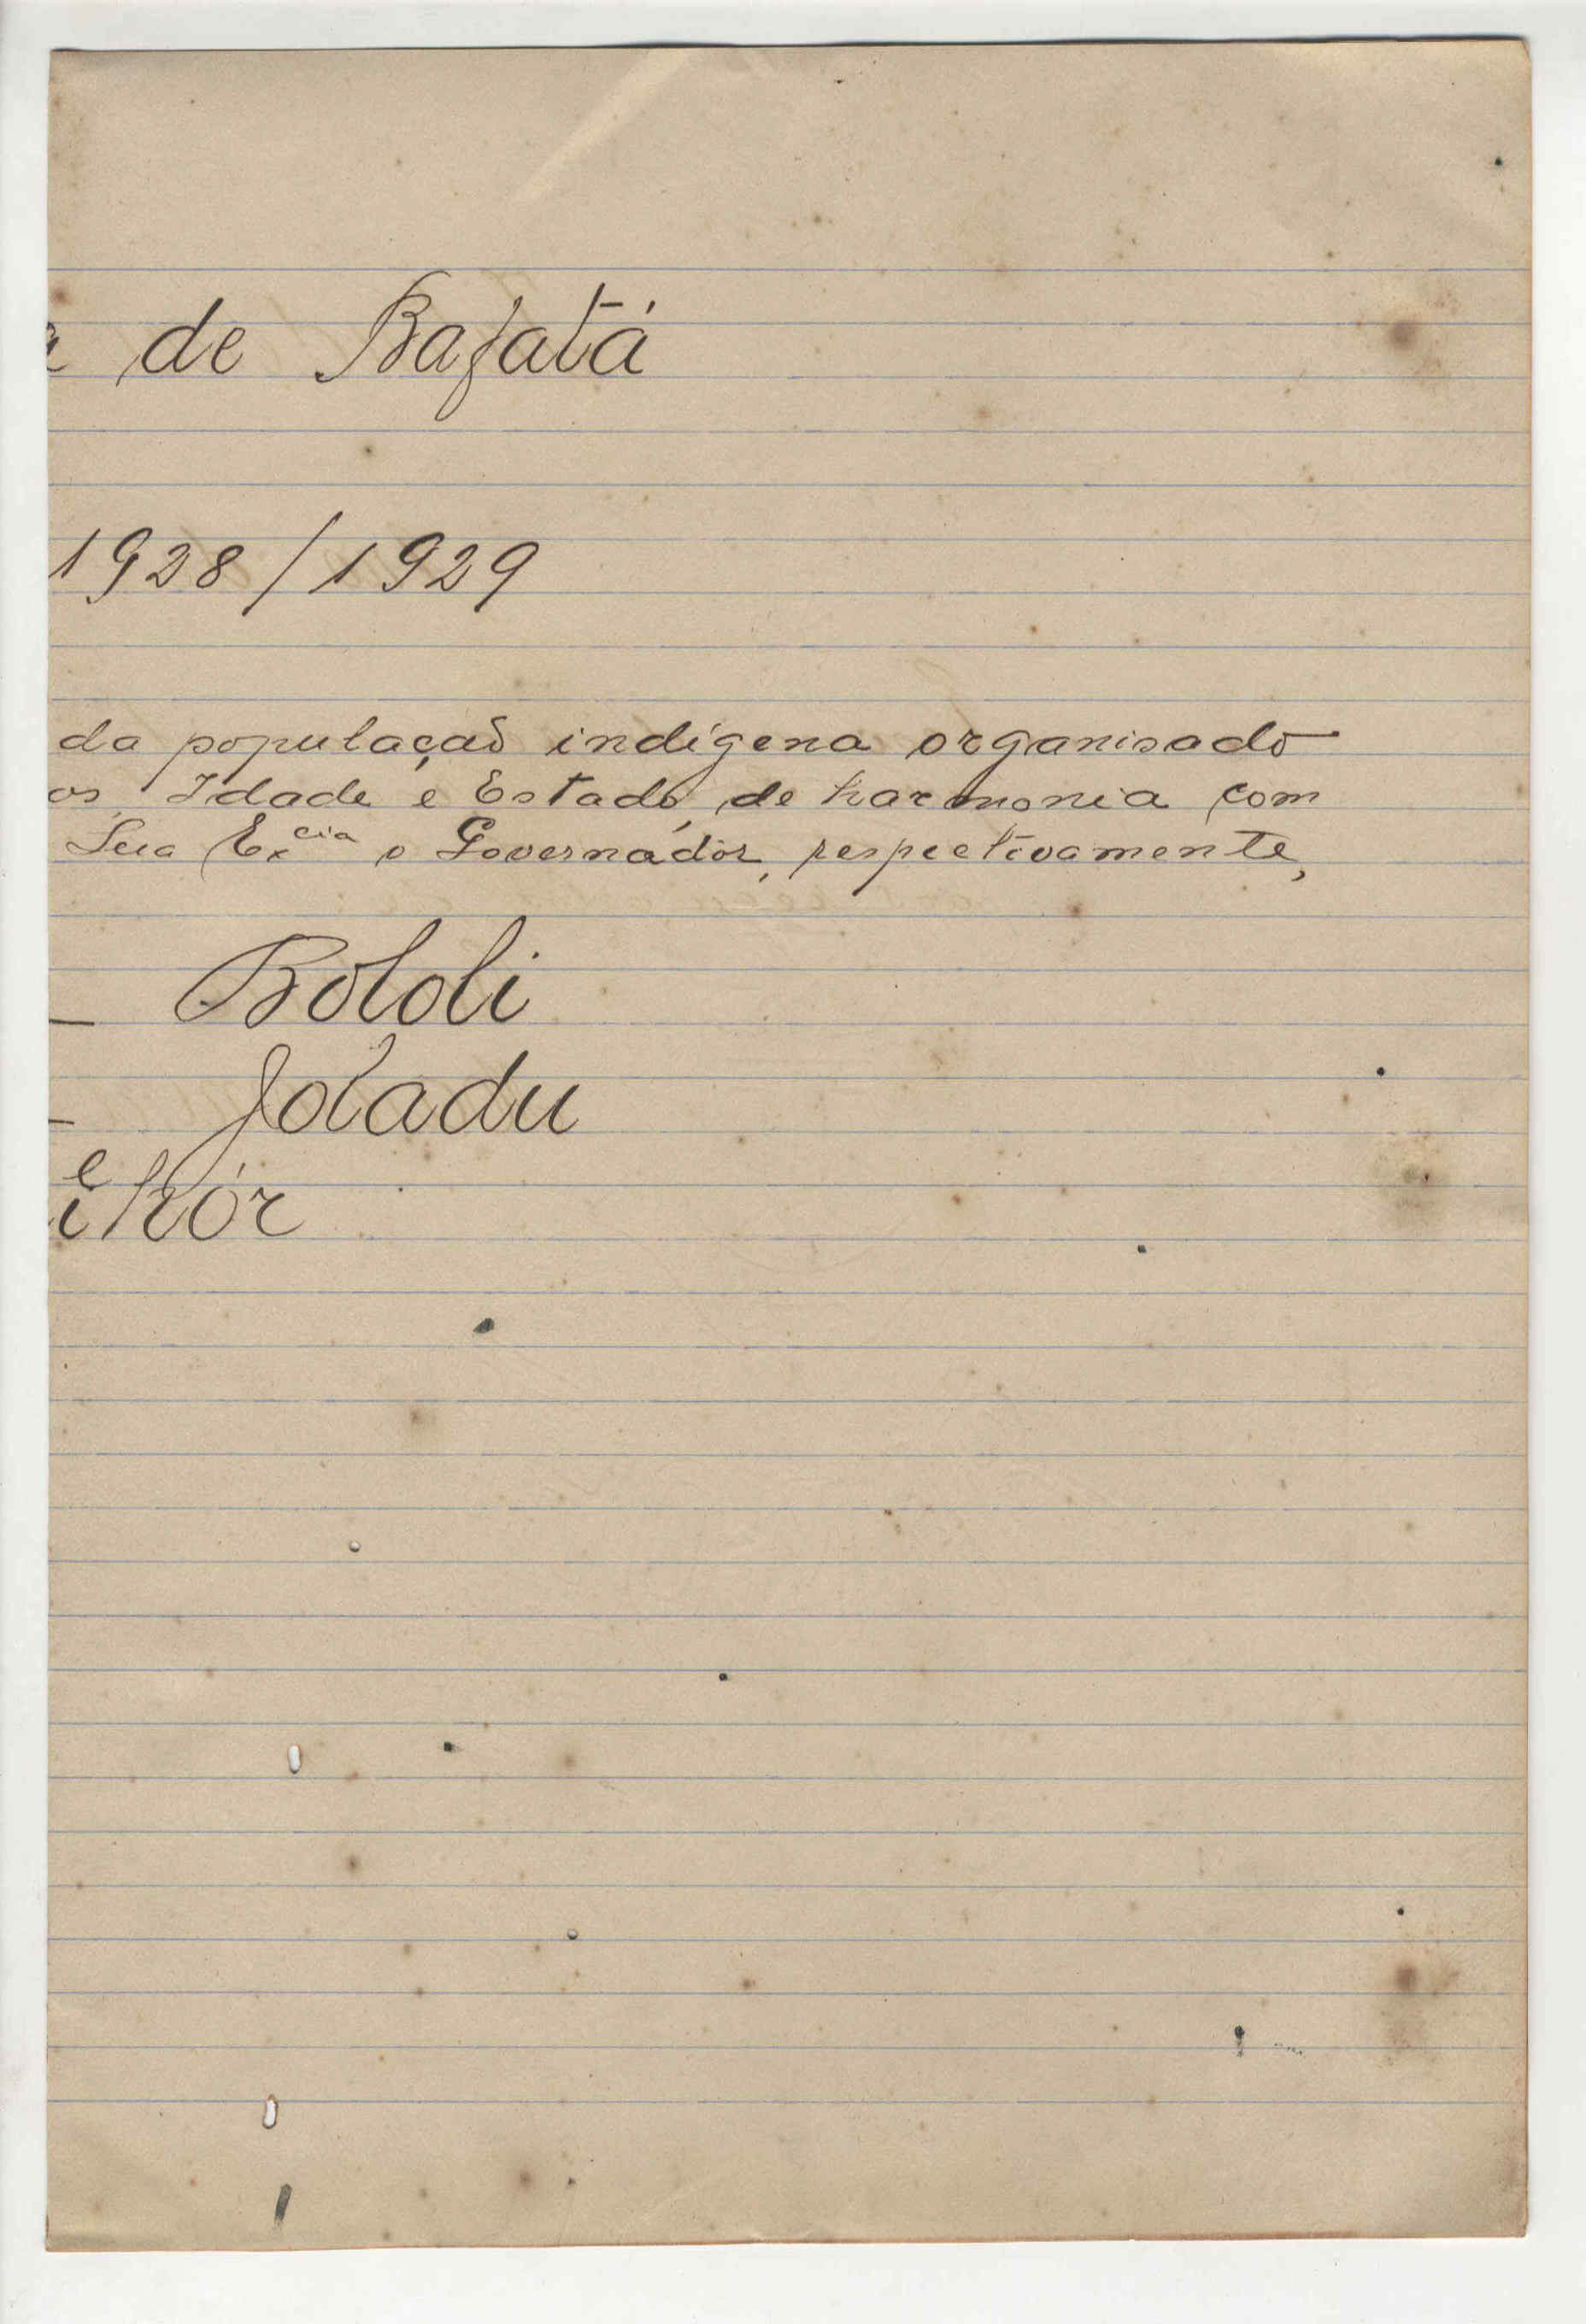 a de Bafatá
1928/1929
da população indígena organisado
os, Idade e Estado, de harmonia com
Sua Ex.cia o Governadôr, respectivamente,
— Bololi
— Joladu
e
ikór